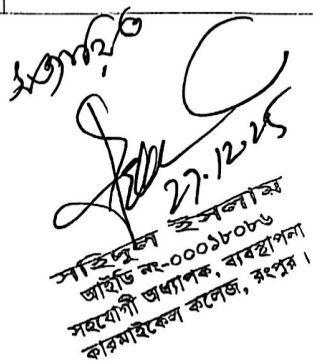 সত্যায়িত
27.12.25
সহিদুল ইসলাম
আইডি নং-০০০১৮০৮৬
সহযোগী অধ্যাপক, ব্যবস্থাপনা
কারমাইকেল কলেজ, রংপুর।